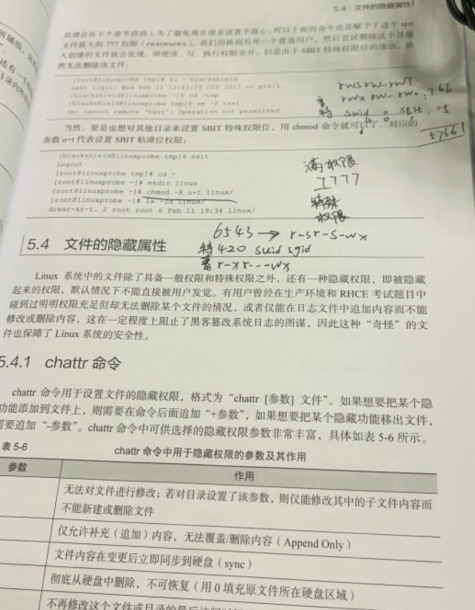 5.4 文件的隐藏属性
文件最大的 777 权限（rwxrwxrwx）。我们切换到另外一个普通用户，然后尝试删除这个其他
人创建的文件就会发现，即便读、写、执行权限全开，但是由于 SBIT 特殊权限位的缘故，依
然无法删除该文件：
[root@linuxprobe tmp]# su - blackshield
Last login: Wed Feb 11 12:41:29 CST 2017 on pts/1
[blackshield@linuxprobe ~]$ cd /tmp
[blackshield@linuxprobe tmp]$ rm -f test
rm: cannot remove 'test': Operation not permitted
当然，要是也想对其他目录来设置 SBIT 特殊权限位，用 chmod 命令就可以了。对应的
参数 o+t 代表设置 SBIT 粘滞位权限：
[blackshield@linuxprobe tmp]$ exit
Logout
[root@linuxprobe tmp]# cd ~
[root@linuxprobe ~]# mkdir linux
[root@linuxprobe ~]# chmod -R o+t linux/
[root@linuxprobe ~]# ls -ld linux/
drwxr-xr-t. 2 root root 6 Feb 11 19:34 linux/
5766
满权限
7777
特殊
权限
6543 → r-sr-S-wx
特 420 suid sgid
普 r-xr---wx
5.4 文件的隐藏属性
Linux 系统中的文件除了具备一般权限和特殊权限之外，还有一种隐藏权限，即被隐藏
起来的权限，默认情况下不能直接被用户发觉。有用户曾经在生产环境和 RHCE 考试题目中
碰到过明明权限充足但却无法删除某个文件的情况，或者仅能在日志文件中追加内容而不能
修改或删除内容，这在一定程度上阻止了黑客篡改系统日志的图谋，因此这种“奇怪”的文
件也保障了 Linux 系统的安全性。
5.4.1 chattr 命令
chattr 命令用于设置文件的隐藏权限，格式为“chattr [参数] 文件”。如果想要把某个隐
功能添加到文件上，则需要在命令后面追加“+参数”，如果想要把某个隐藏功能移出文件，
需要追加“-参数”。chattr 命令中可供选择的隐藏权限参数非常丰富，具体如表 5-6 所示。
表 5-6 chattr 命令中用于隐藏权限的参数及其作用
参数 作用
无法对文件进行修改；若对目录设置了该参数，则仅能修改其中的子文件内容而
不能新建或删除文件
仅允许补充（追加）内容，无法覆盖/删除内容（Append Only）
文件内容在变更后立即同步到硬盘（sync）
彻底从硬盘中删除，不可恢复（用 0 填充原文件所在硬盘区域）